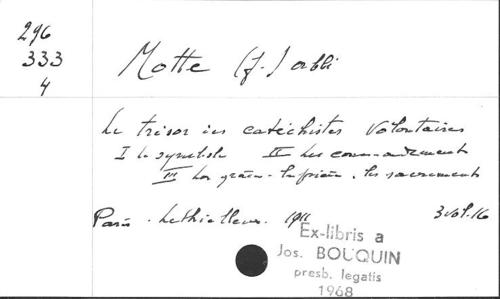 296
333
4
Motte (J.) abbé
Le trésor des catéchistes volontaires
I le symbole II Les commandements
III La grâce - la prière - les sacrements
Paris - Lethielleux - 1911 3 vol. 16
Ex-libris a
Jos. BOUQUIN
presb. legatis
1968